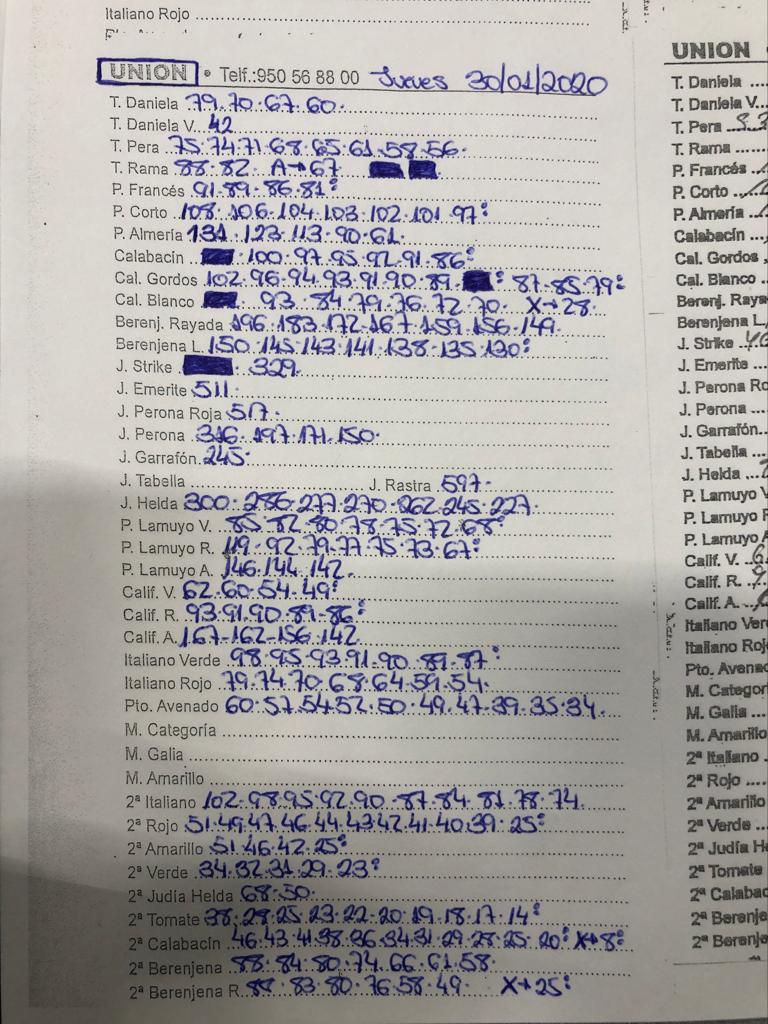 Italiano Rojo
UNION • Telf.:950 56 88 00 Jueves 30/01/2020
T. Daniela 79.70.67.60.
T. Daniela V. 42
T. Pera 75.74.71.68.65.61.58.56.
T. Rama 88.82. A→67
P. Francés 91.89.86.81:
P. Corto 108.106.104.103.102.101.97:
P. Almería 131.123.113.90.61.
Calabacín 100.97.95.92.91.86:
Cal. Gordos 102.96.94.93.91.90.89. : 87.85.79:
Cal. Blanco 93.84.79.76.72.70. X→28.
Berenj. Rayada 196.183.172.167.159.156.149.
Berenjena L. 150.145.143.141.138.135.130:
J. Strike 329.
J. Emerite 511.
J. Perona Roja 517.
J. Perona 316.197.171.150.
J. Garrafón 245.
J. Tabella J. Rastra 597.
J. Helda 300.286.277.270.262.245.227.
P. Lamuyo V. 85.82.80.78.75.72.68:
P. Lamuyo R. 119.92.79.77.75.73.67:
P. Lamuyo A. 146.144.142.
Calif. V. 62.60.54.49:
Calif. R. 93.91.90.89.86:
Calif. A. 167.162.156.142
Italiano Verde 98.95.93.91.90.89.87:
Italiano Rojo 79.74.70.68.64.59.54.
Pto. Avenado 60.57.54.52.50.49.47.39.35.34.
M. Categoría
M. Galia
M. Amarillo
2ª Italiano 102.98.95.92.90.87.84.81.78.74.
2ª Rojo 51.49.47.46.44.43.42.41.40.39.25:
2ª Amarillo 51.46.42.25:
2ª Verde 34.32.31.29.23:
2ª Judía Helda 68.50.
2ª Tomate 38.28.25.23.22.20.19.18.17.14:
2ª Calabacín 46.43.41.38.36.34.31.29.28.25.20: X→8:
2ª Berenjena 88.84.80.74.66.61.58.
2ª Berenjena R. 83.80.76.58.49. X→25:
UNION
T. Daniela
T. Daniela V.
T. Pera
T. Rama
P. Francés
P. Corto
P. Almería
Calabacín
Cal. Gordos
Cal. Blanco
Berenj. Raya
Berenjena L.
J. Strike
J. Emerite
J. Perona Ro
J. Perona
J. Garrafón
J. Tabella
J. Helda
P. Lamuyo V
P. Lamuyo F
P. Lamuyo A
Calif. V.
Calif. R.
Calif. A.
Italiano Ver
Italiano Roj
Pto. Avenad
M. Categor
M. Galia
M. Amarillo
2ª Italiano
2ª Rojo
2ª Amarillo
2ª Verde
2ª Judía H
2ª Tomate
2ª Calabac
2ª Berenje
2ª Berenje